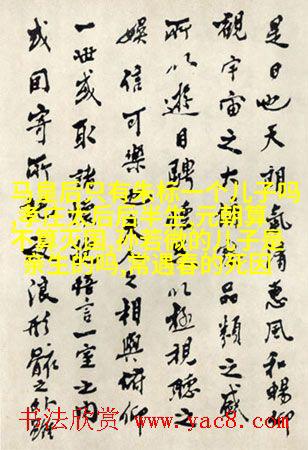 是日也天朗氣清惠風和暢仰
觀宇宙之大品類之盛
所以遊目騁以極視聽之
娛信可樂人之相與俯仰
一世或取諸悟言一室之內
或因寄所浪形骸之外雖
马皇后只有朱标一个儿子吗
,孝庄太后后半生,元朝算
不算灭国,孙若微的儿子是
亲生的吗,常遇春的死因
书法欣赏 www.yac8.com